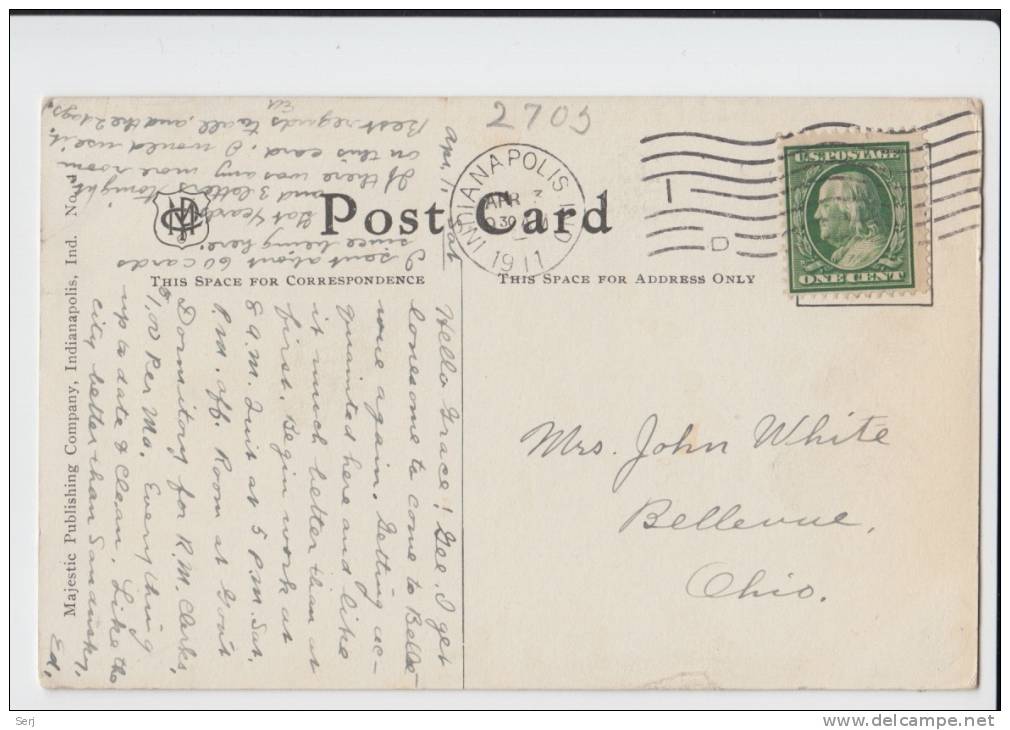 2705
Post Card
THIS SPACE FOR CORRESPONDENCE
THIS SPACE FOR ADDRESS ONLY
Majestic Publishing Company, Indianapolis, Ind. No.
INDIANAPOLIS IND
APR 2
1911
D
U.S. POSTAGE
ONE CENT
Apr. 1. Sat
Hello Grace! Gee. I get
lonesome to come to Belle-
vue again. Getting ac-
quainted here and like
it much better than at
first. Begin work at
8 A.M. Quit at 5 P.M. Sat.
P.M. off. Room at Gov't
Dormitory for R.M. Clerks.
Per Mo. Everything
up to date & Clean. Like the
city better than Sandusky.
Ed.
I sent about 60 cards
since being here.
Got 4 cards
and 3 letters tonight
If there was any more room
on this card. I would use it.
Best regards to all, and the 2 dogs.
Mrs. John White
Bellevue,
Ohio.
Serj
delcampe.net